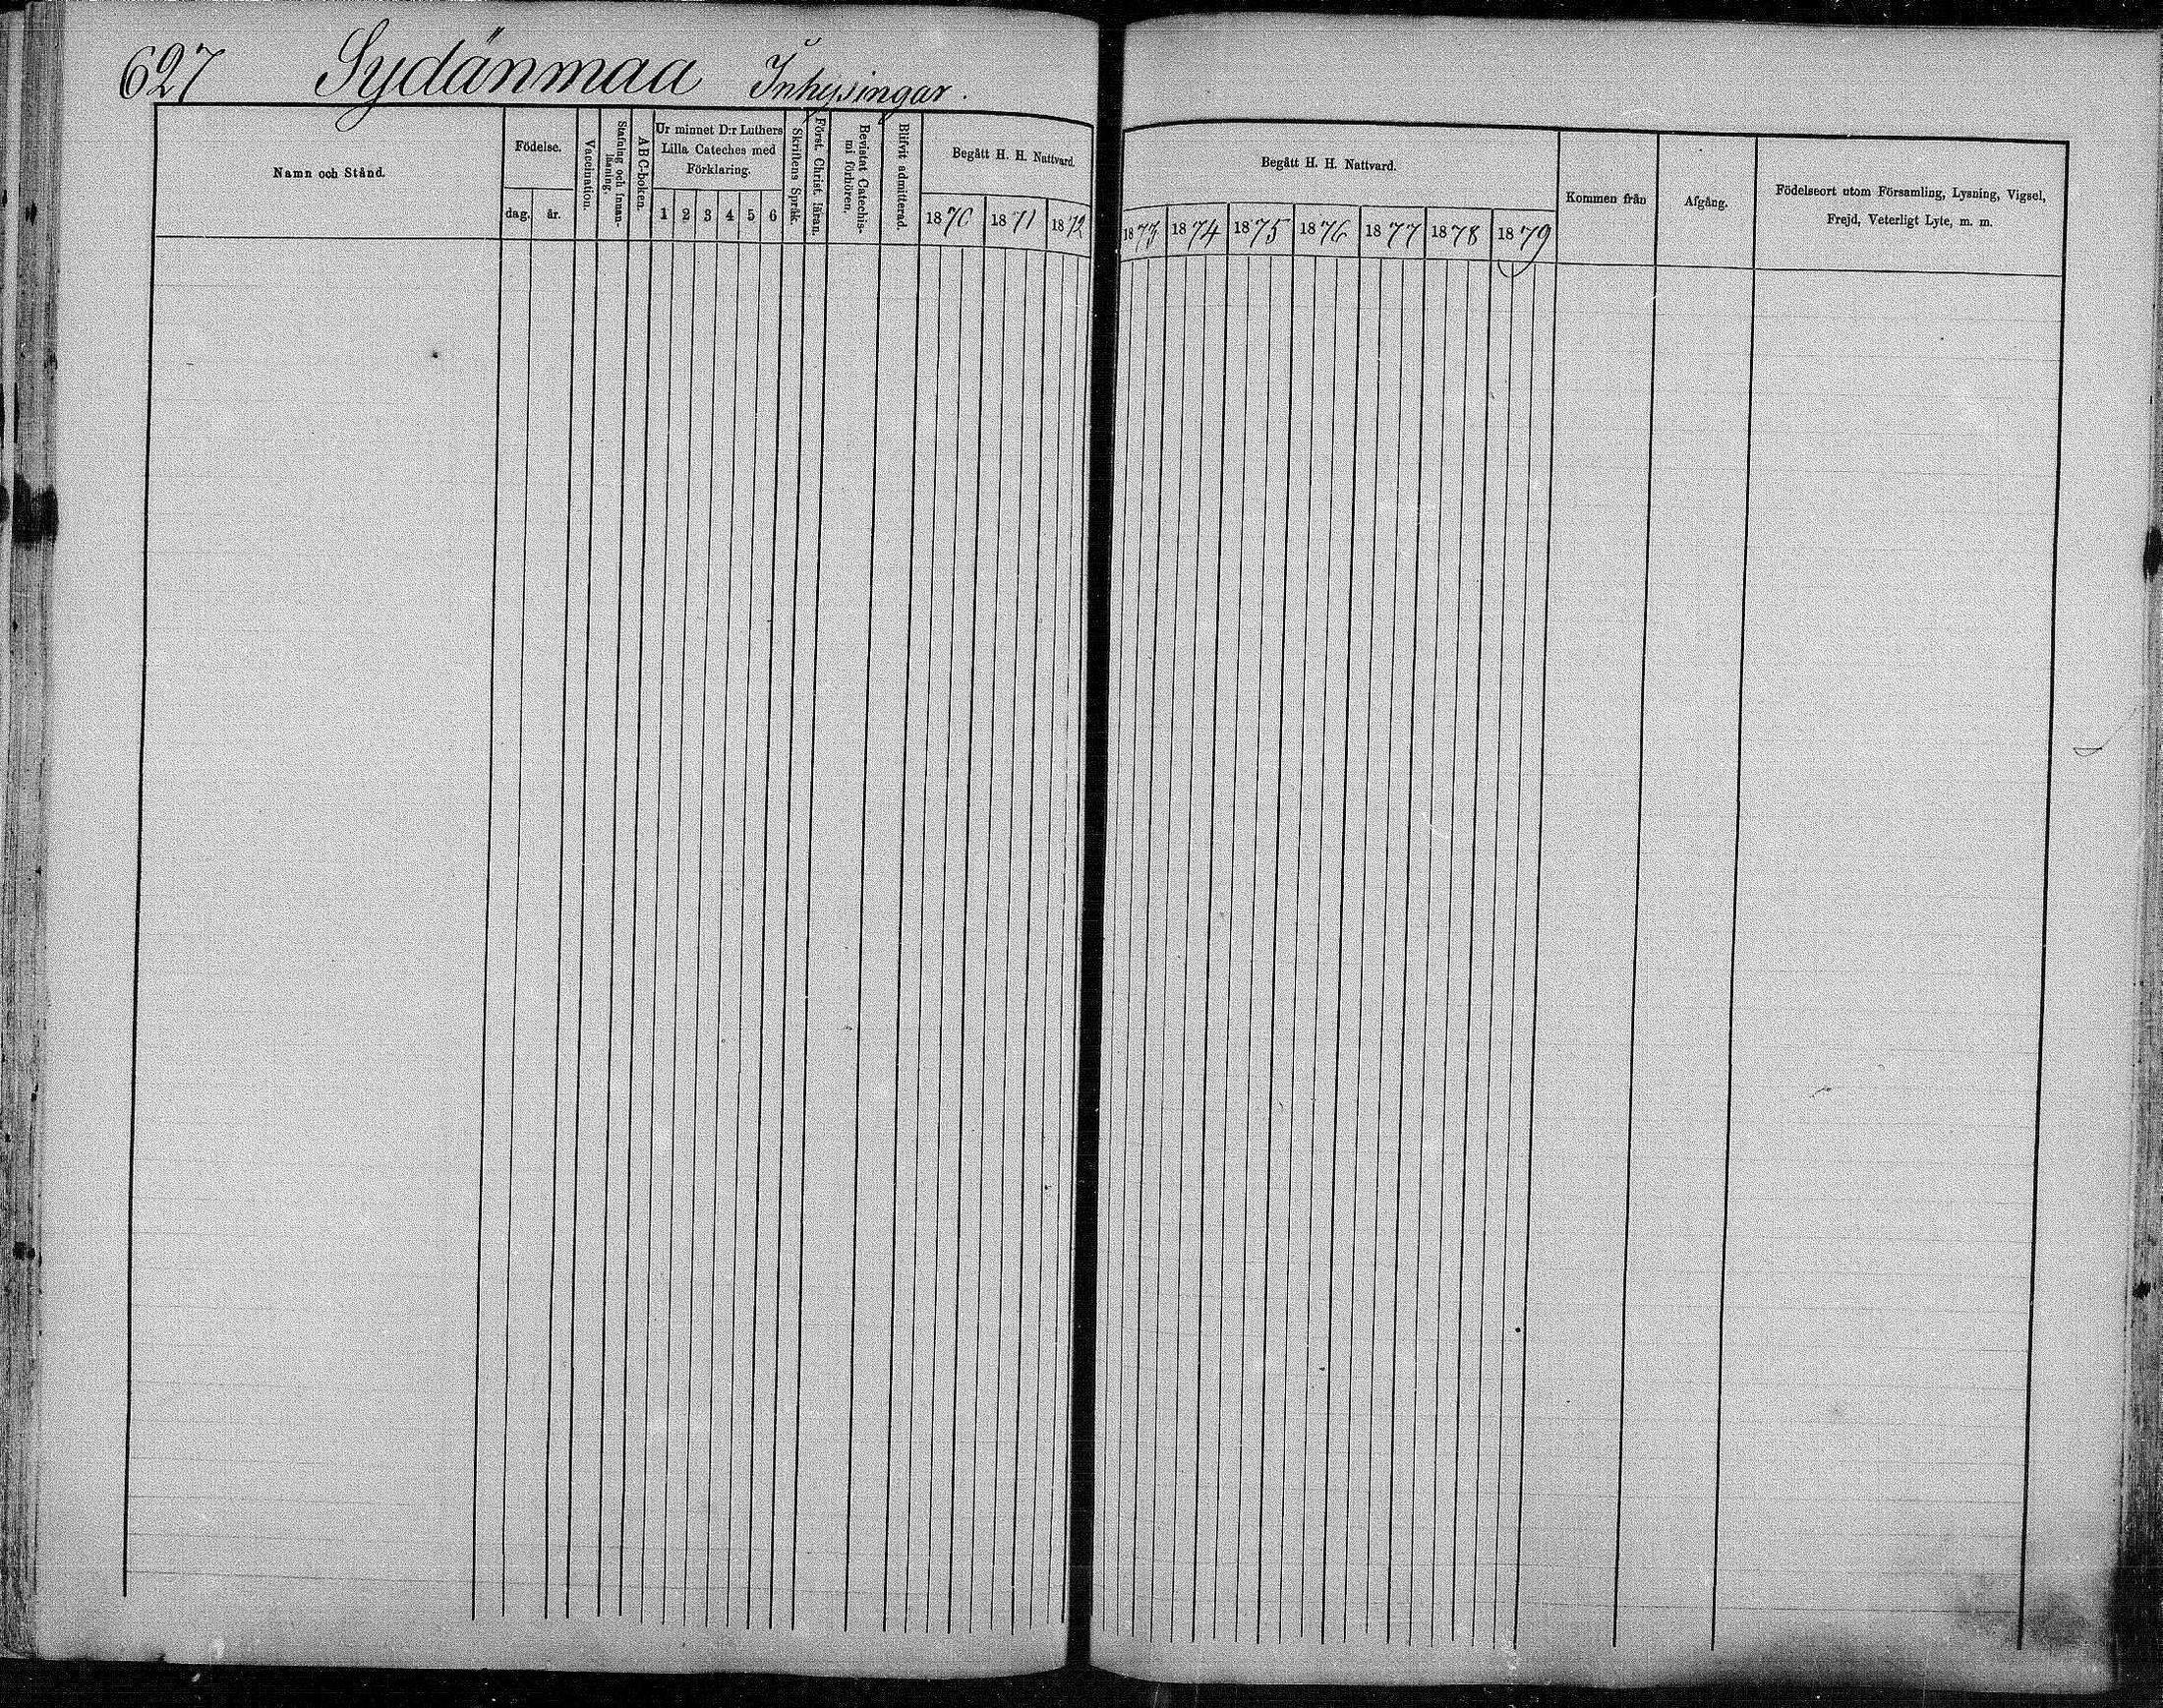 627 Sydänmaa Inhysingar.
Namn och Stånd.
Födelse.
dag. år.
Vaccination.
Stafning och innan-
läsning.
ABC-boken.
Ur minnet D:r Luthers
Lilla Cateches med
Förklaring.
1 2 3 4 5 6
Skriftens Språk.
Först. Christ. läran.
Bevistat Catechis-
mi förhören.
Blifvit admitterad.
Begått H. H. Nattvard.
1870 1871 1872
Begått H. H. Nattvard.
1873 1874 1875 1876 1877 1878 1879
Kommen från
Afgång.
Födelseort utom Församling, Lysning, Vigsel,
Frejd, Veterligt Lyte, m. m.